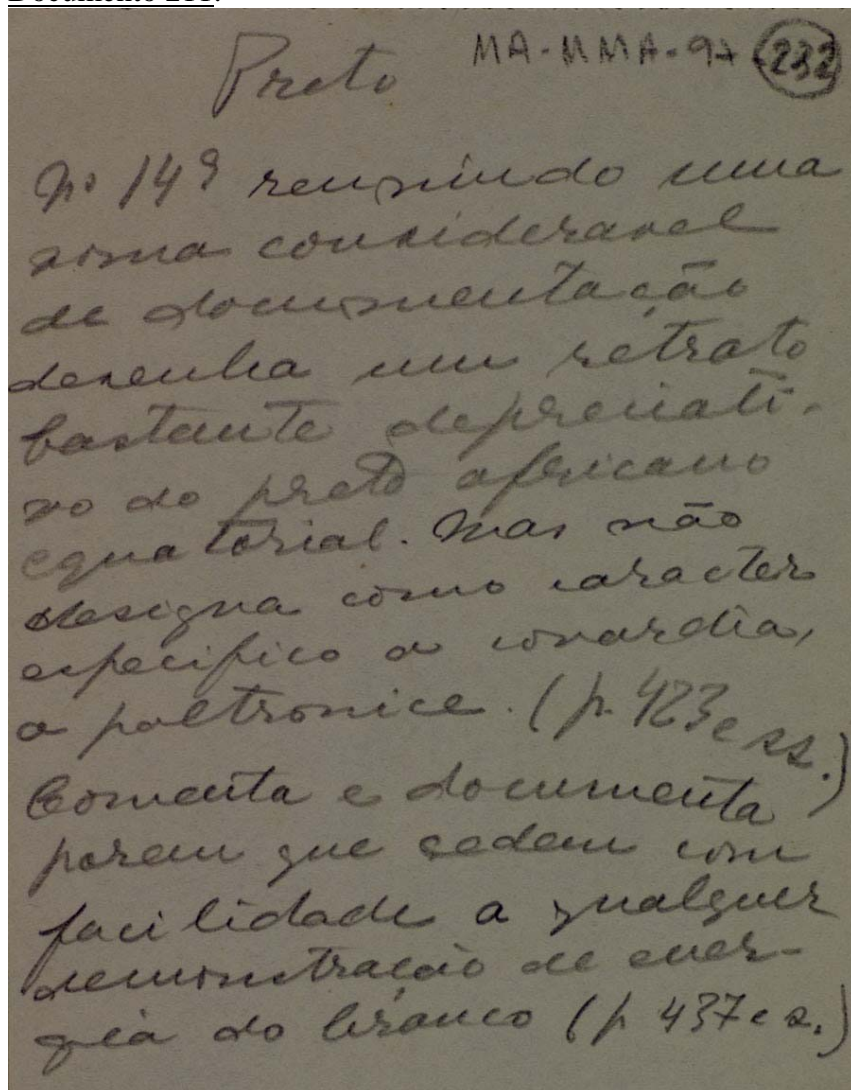 Documento 211:
Preto
MA-MMA-97 232
Nº 149 reunindo uma
soma consideravel
de documentação
desenha um retrato
bastante depreciati-
vo do preto africano
equatorial. Mas não
designa como caracter
especifico a covardia,
a poltronice. (p. 423 e ss.)
Comenta e documenta
porem que cedem com
facilidade a qualquer
demonstração de ener-
gia do branco (p 437 e s.)